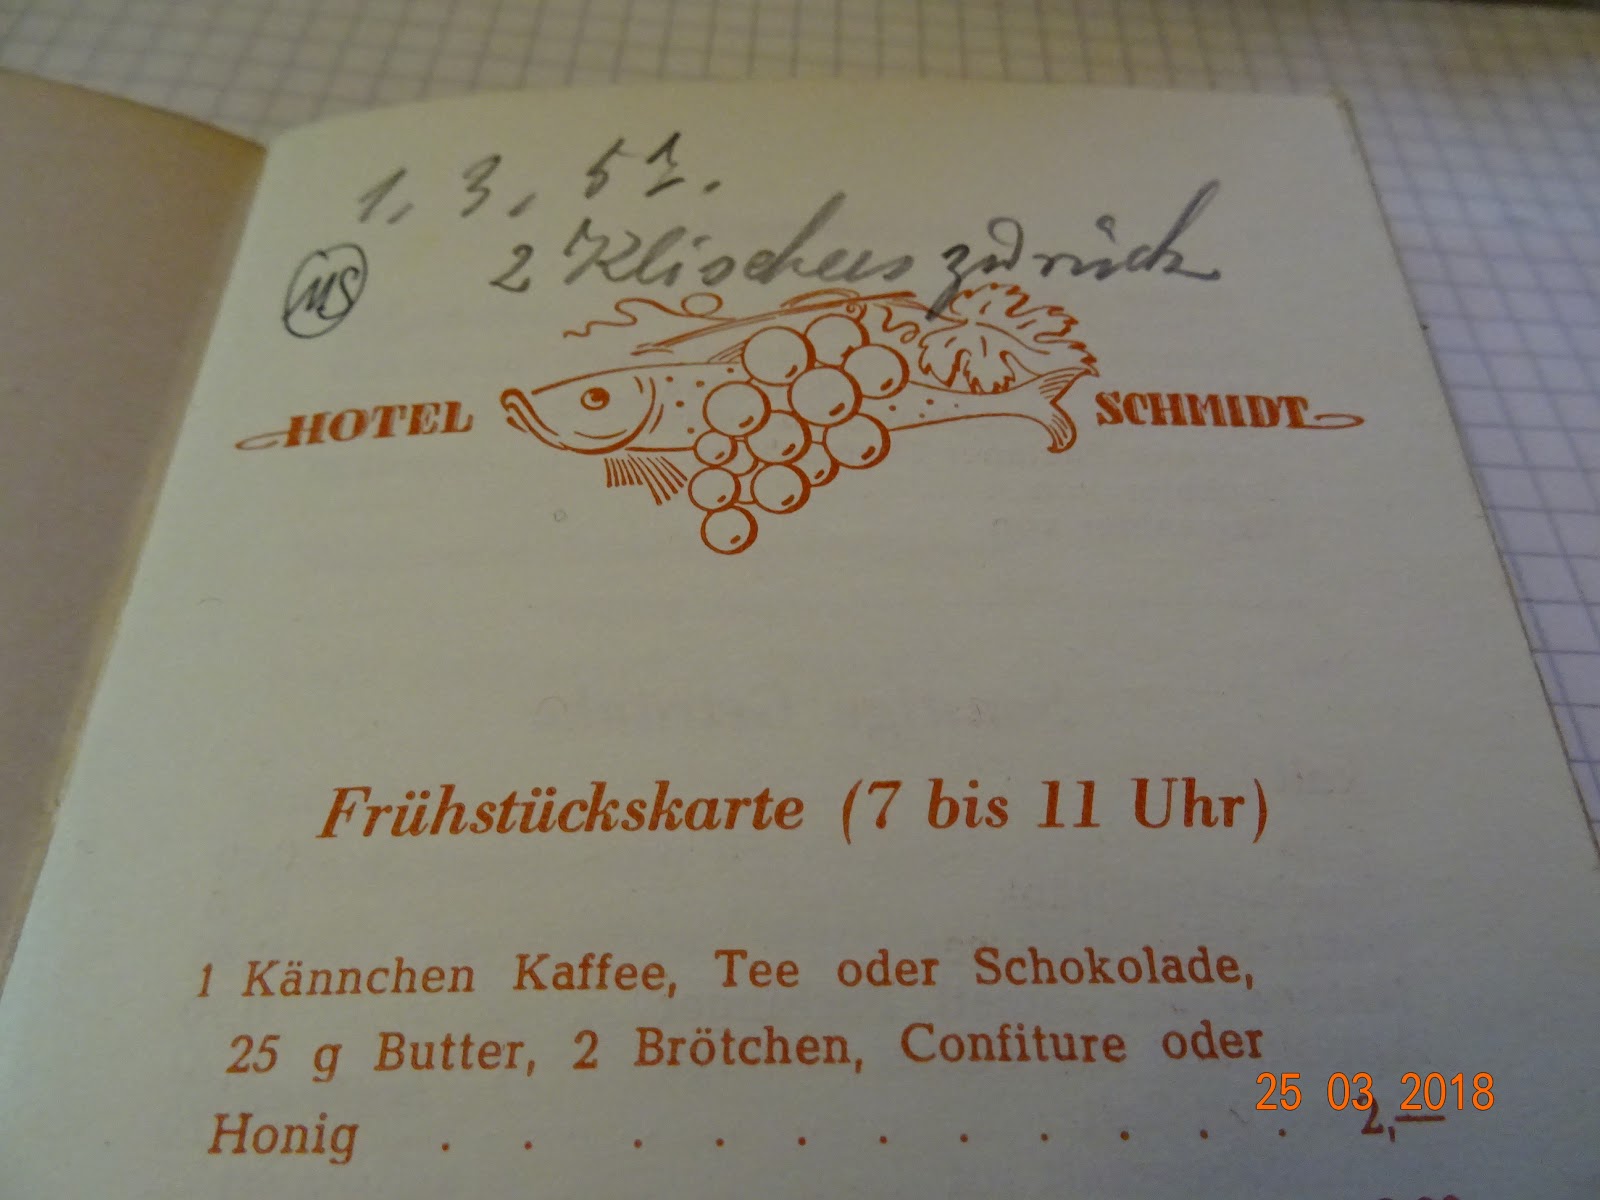 1, 3, 51.
2 Klischees zurück
MS
HOTEL SCHMIDT
Frühstückskarte (7 bis 11 Uhr)
1 Kännchen Kaffee, Tee oder Schokolade,
25 g Butter, 2 Brötchen, Confiture oder
Honig . . . . . . . . . . . . 2,—
25 03 2018